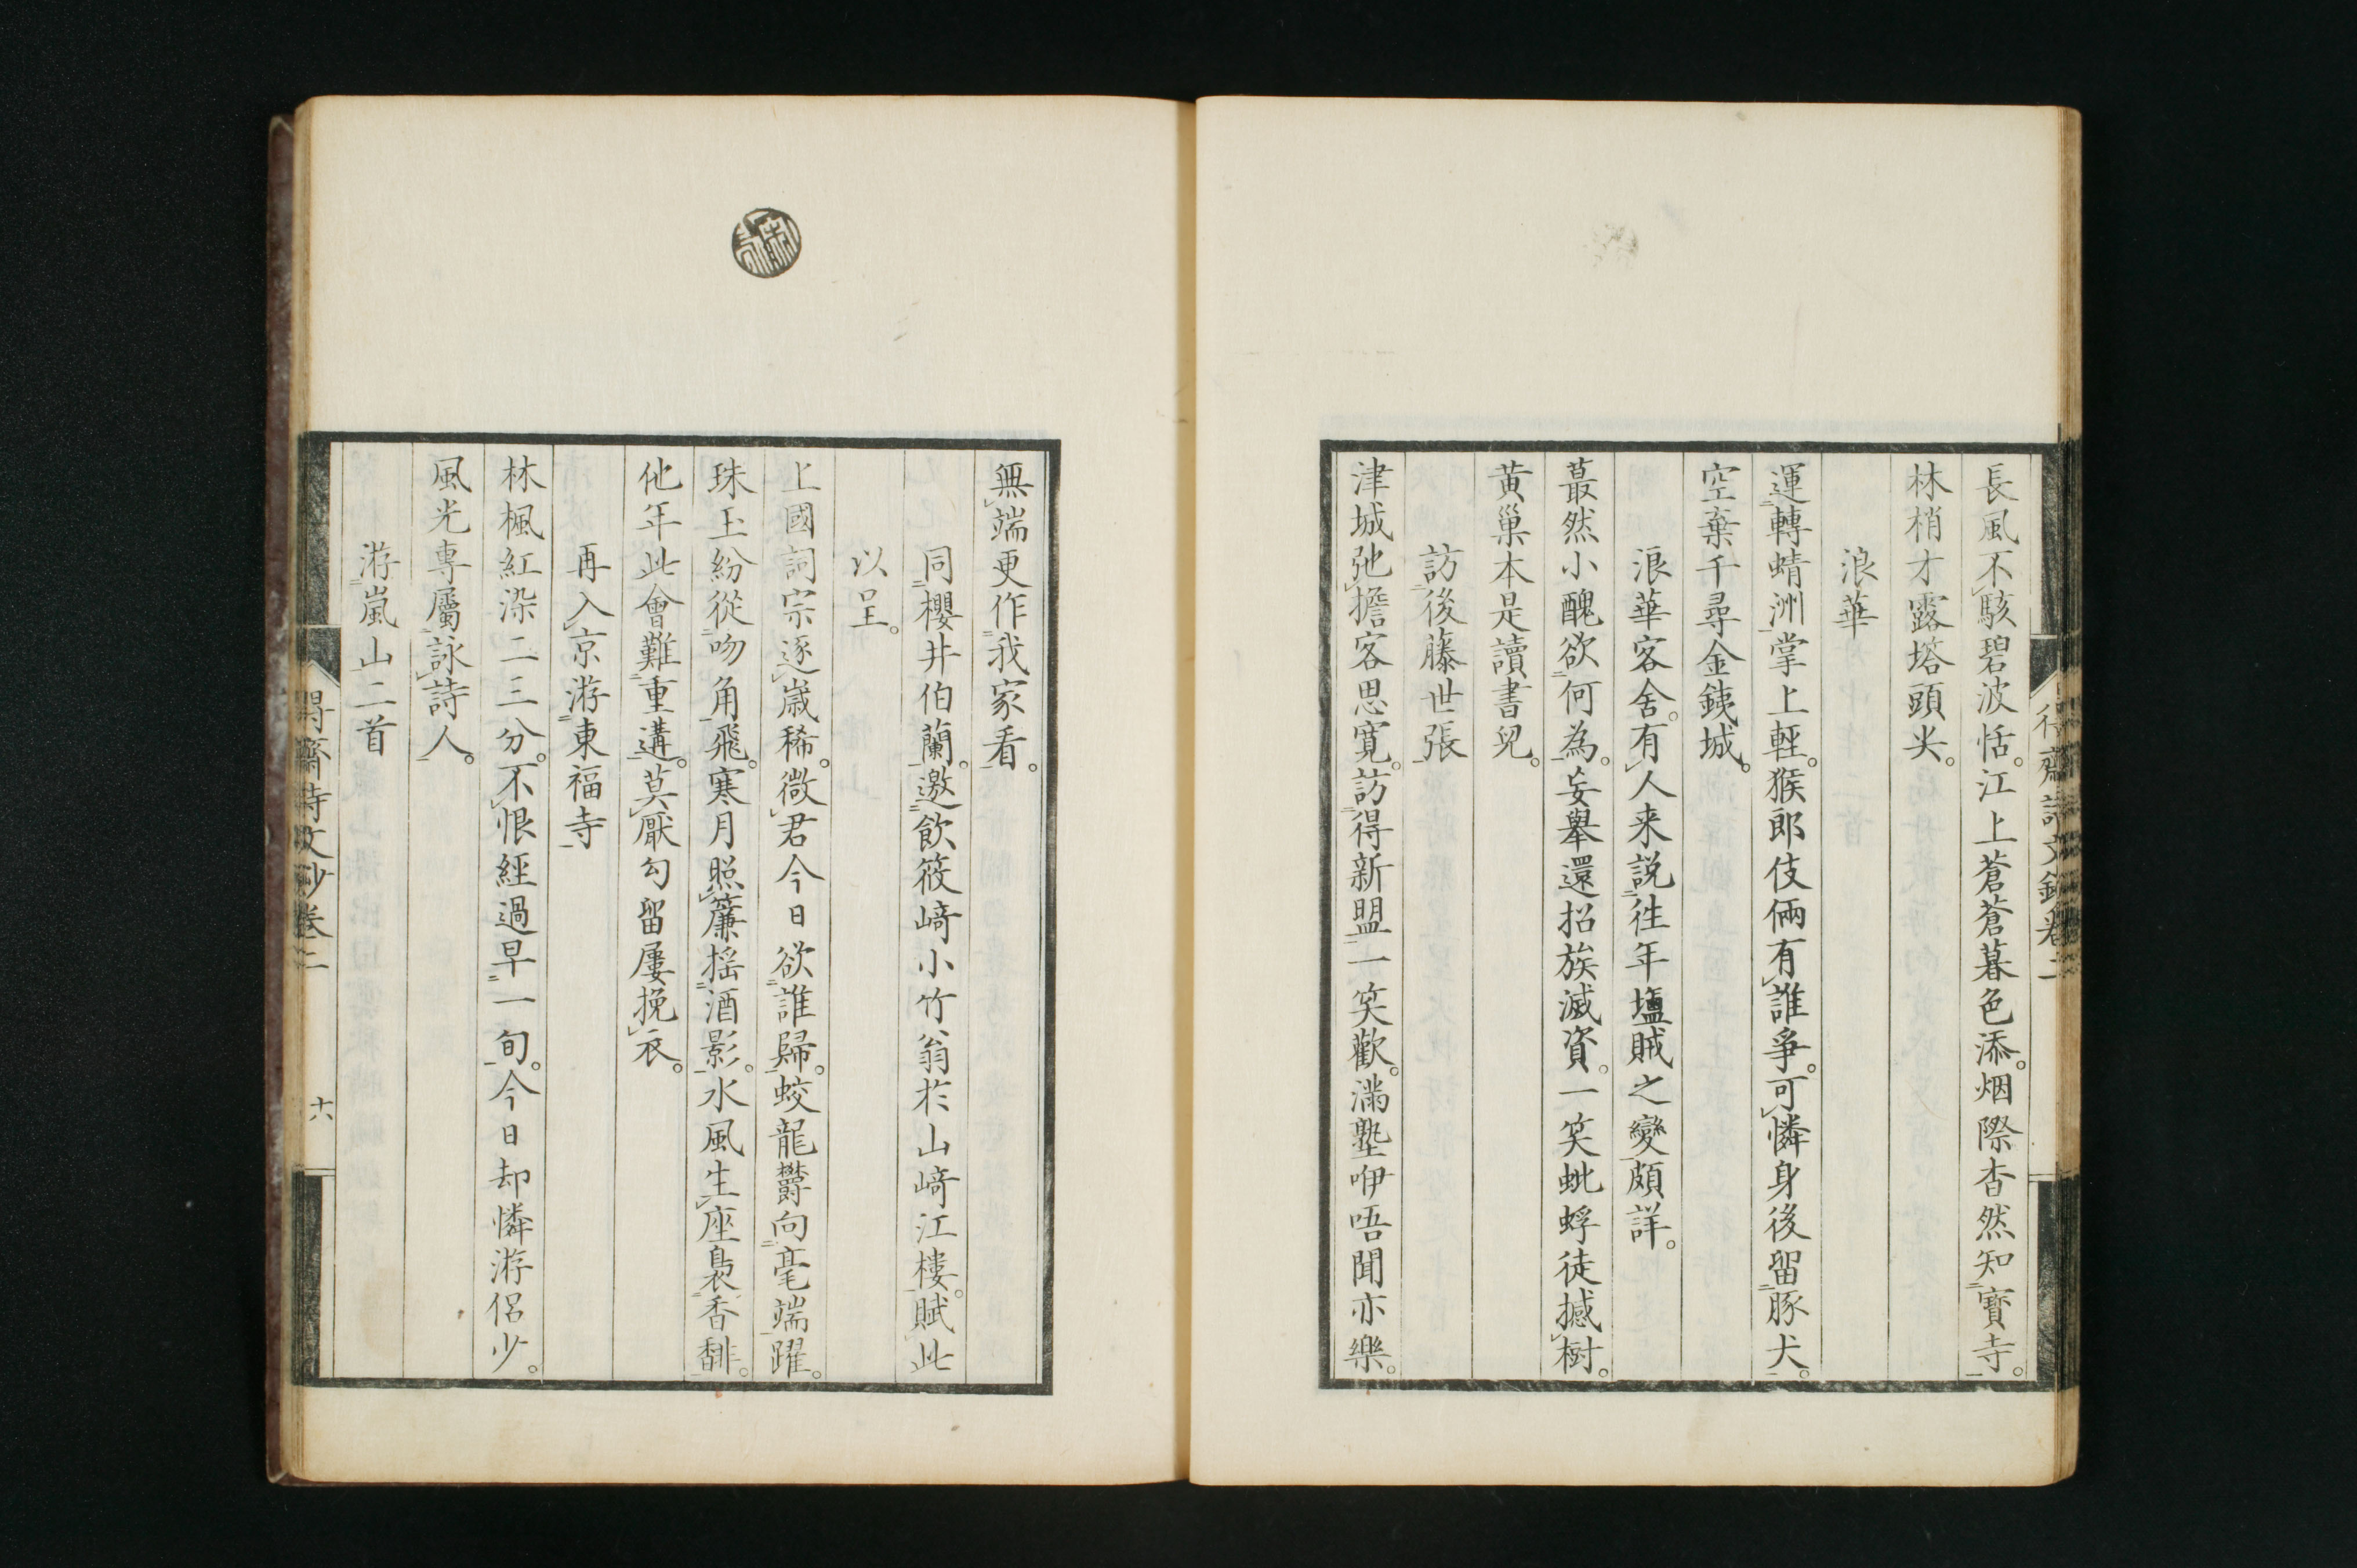 長風不駭碧波恬。江上蒼蒼暮色添。烟際杳然知寶寺。
林梢才露塔頭尖。
浪華
運轉蜻洲掌上輕。猴郎伎倆有誰爭。可憐身後留豚犬。
空棄千尋金銕城。
浪華客舍。有人来説往年塩賊之變頗詳。
蕞然小醜欲何為。妄舉還招族滅資。一笑蚍蜉徒撼樹。
黄巢本是讀書兒。
訪後藤世張
津城弛擔客思寛。訪得新盟一笑歡。滿塾咿唔聞亦樂。
無端更作我家看。
同櫻井伯蘭。邀飲筱﨑小竹翁於山﨑江樓。賦此
以呈。
上國詞宗逐歳稀。微君今日欲誰歸。蛟龍欝向毫端躍。
珠玉紛從吻角飛。寒月照簾揺酒影。水風生座裊香馡。
他年此會難重遘。莫厭勾留屢挽衣。
再入京游東福寺
林楓紅染二三分。不恨經過早一旬。今日却憐游侶少。
風光專屬詠詩人。
游嵐山二首
齋詩文鈔卷二
十六